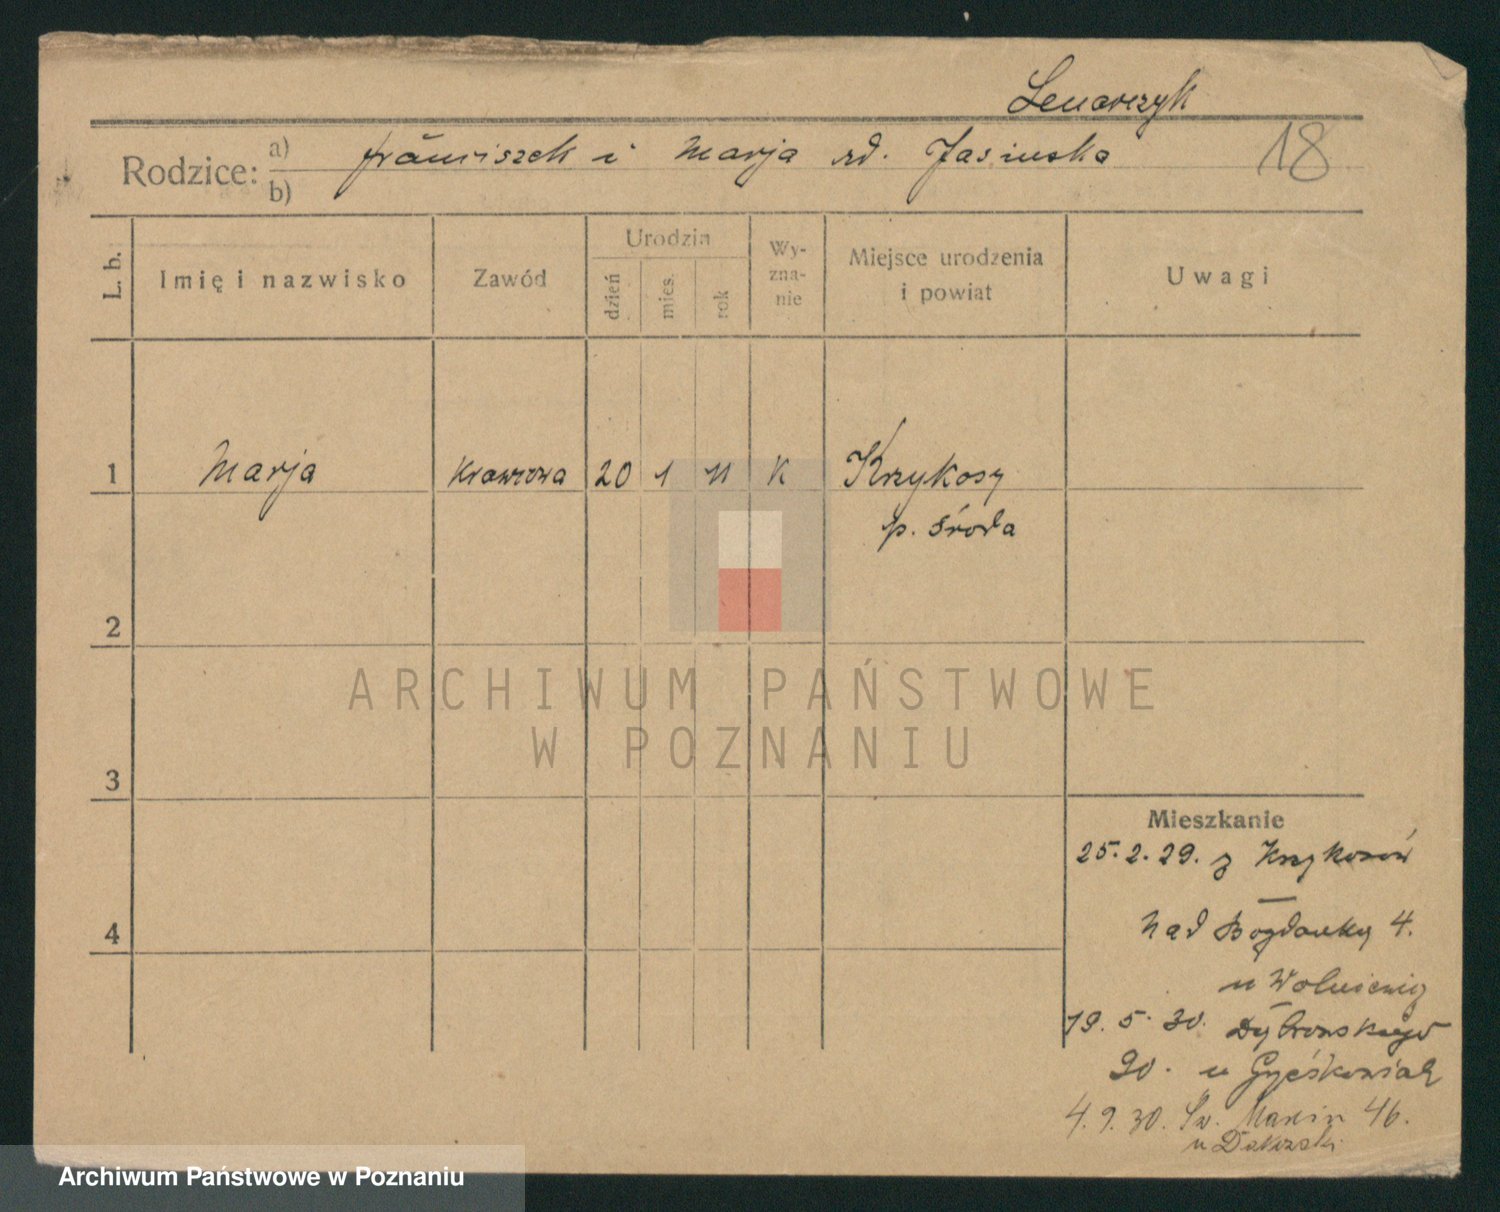 Lenarczyk
Rodzice: a) Franciszek i Marja zd. Jasinska 18
b)
L. b.
Imię i nazwisko
Zawód
Urodzin
dzień
mies.
rok
Wy-
zna-
nie
Miejsce urodzenia
i powiat
Uwagi
1 Marja Krawcowa 20 1 11 K Krzykosy
p. Środa
2
3
4
Mieszkanie
25.2.29. z Krzykosów
Nad Bogdanką 4.
u
19.5.30. Dąbrowskiego
90. u
4.9.30. Św. Marcin 46.
u
ARCHIWUM PAŃSTWOWE
W POZNANIU
Archiwum Państwowe w Poznaniu